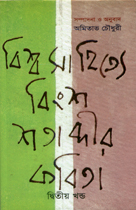 সম্পাদনা ও অনুবাদ
অমিতাভ চৌধুরী
বিশ্বসাহিত্যে
বিংশ
শতাব্দীর
কবিতা
দ্বিতীয় খন্ড